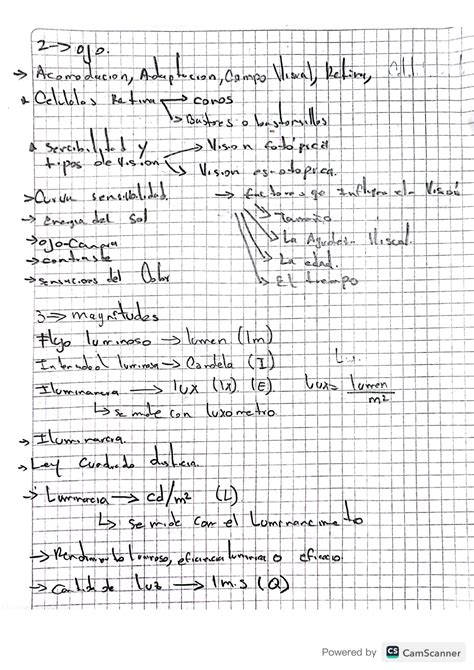 2 → ojo.
→ Acomodacion, Adaptacion, Campo Visual, Retina,
Celulas Retina → conos
↳ Bastones o bastoncillos
Sencibilidad y → Vision fotópica
tipos de vision ↘ Vision escotopica.
→ Curva sensibilidad. → factores qe Influyen el Visión
→ Energia del Sol → Tamaño
→ ojo-Campo → La Agudeza Visual.
→ contraste → La edad.
→ sensacions del Color → El tiempo
3 → magnitudes
Flujo luminoso → lumen (lm)
Intensidad luminosa → Candela (I)
Iluminancia → lux (lx) (E) lux = lumen/m²
↳ se mide con luxometro
→ Iluminancia.
→ Ley Cuadrado distancia.
→ Luminancia → cd/m² (L)
↳ se mide con el Luminancimetro
→ Rendimiento luminoso, eficiencia luminosa o eficacia
→ Cantidad de luz → lm.s (Q)
Powered by CS CamScanner